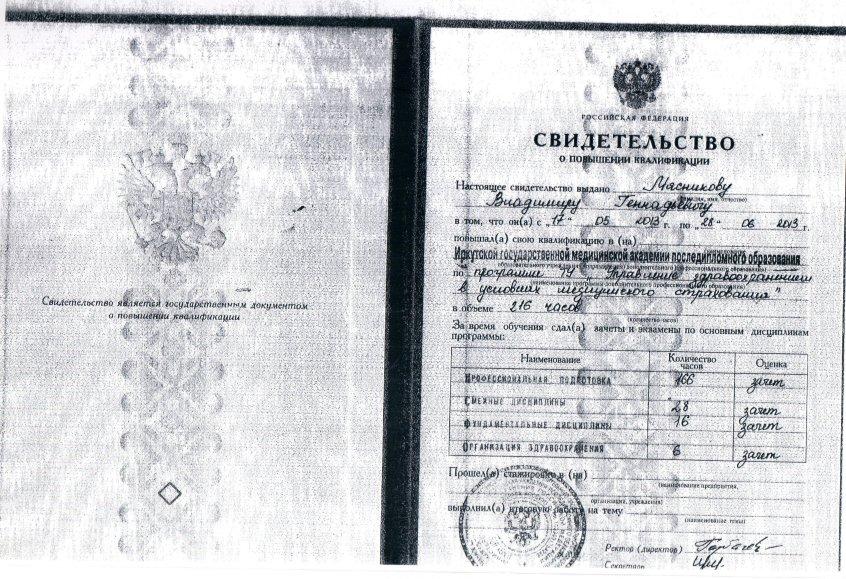 Свидетельство является государственным документом
о повышении квалификации
РОССИЙСКАЯ ФЕДЕРАЦИЯ
СВИДЕТЕЛЬСТВО
О ПОВЫШЕНИИ КВАЛИФИКАЦИИ
Настоящее свидетельство выдано Мясникову
Владимиру Геннадьевичу
(фамилия, имя, отчество)
в том, что он(а) с „17" 05 2013 г. по „28" 06 2013 г.
повышал(а) свою квалификацию в (на)
Иркутской государственной медицинской академии последипломного образования
по программе ТУ "Управление здравоохранением
в условиях медицинского страхования"
в объеме 216 часов
(количество часов)
За время обучения сдал(а) зачеты и экзамены по основным дисциплинам
программы:
Наименование Количество часов Оценка
ПРОФЕССИОНАЛЬНАЯ ПОДГОТОВКА 166 зачет
СМЕЖНЫЕ ДИСЦИПЛИНЫ 28 зачет
ФУНДАМЕНТАЛЬНЫЕ ДИСЦИПЛИНЫ 16 зачет
ОРГАНИЗАЦИЯ ЗДРАВООХРАНЕНИЯ 6 зачет
Прошел(а) стажировку в (на)
(наименование предприятия,
организации, учреждения)
выполнил(а) итоговую работу на тему
(наименование темы)
Ректор (директор)
Секретарь